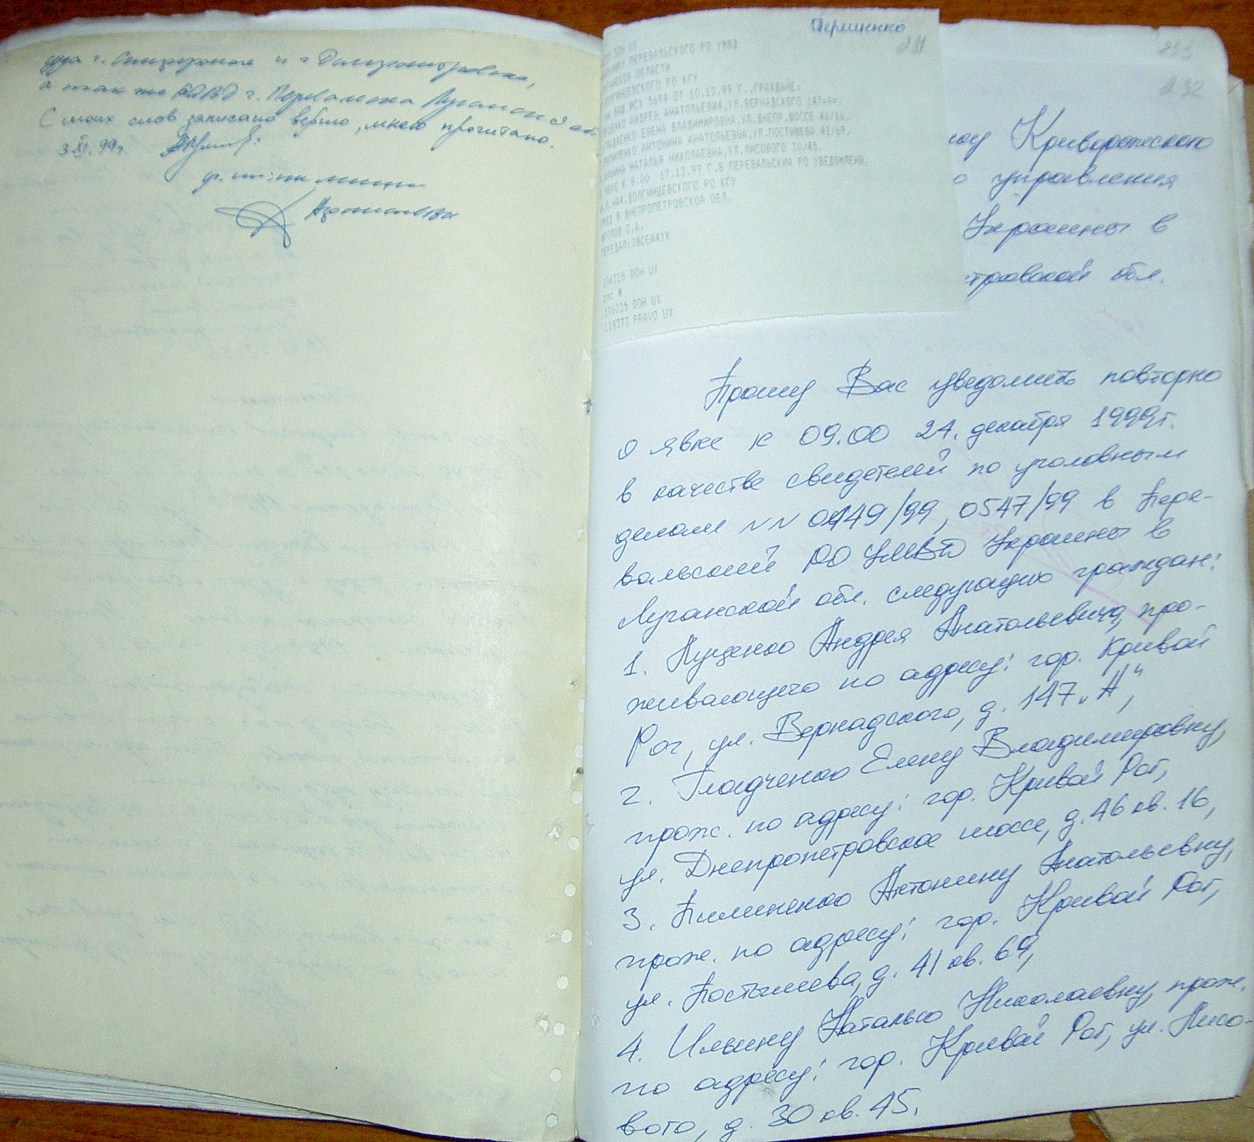 суда г. Симферополя и г. Днепропетровска,
а так же РОВД г. Перевальска Луганской обл.
С моих слов записано верно, мною прочитано.
3.XI.99г.
Терещенко
231
ПЕРЕВАЛЬСКОГО РО УМВД
ОБЛАСТИ
РО КГУ
НА ВАШ ИСХ 9694 ОТ 10.12.99 Г. ГРАЖДАНЕ:
АНДРЕЙ АНАТОЛЬЕВИЧ, УЛ.ВЕРНАДСКОГО 147
ЕЛЕНА ВЛАДИМИРОВНА, УЛ.ДНЕПР.ШОССЕ 46/16,
АНТОНИНА АНАТОЛЬЕВНА, УЛ.ПОСТЫШЕВА 41/69,
НАТАЛЬЯ НИКОЛАЕВНА, УЛ.ЛИСОВОГО 30/45.
К 8.00 17.12.99 Г.В ПЕРЕВАЛЬСКИЙ РО УВЕДОМЛЕНИ.
НАЧ.ДОЛГИНЦЕВСКОГО РО КГУ
В ДНЕПРОПЕТРОВСКОЙ ОБЛ.
DOH UX
DOH UX
PRAVO UX
233
232
Криворожского
управления
Украины в
обл.
Прошу Вас уведомить повторно
о явке к 09.00 24. декабря 1999г.
в качестве свидетелей по уголовным
делам NN 0449/99, 0547/99 в Пере-
вальский РО УМВД Украины в
Луганской обл. следующих граждан:
1. Луценко Андрея Анатольевича, про-
живающего по адресу: гор. Кривой
Рог, ул. Вернадского, д. 147 „А",
2. Гладченко Елену Владимировну,
прож. по адресу: гор. Кривой Рог,
ул. Днепропетровское шоссе, д. 46 кв. 16,
3. Пилипенко Антонину Анатольевну,
прож. по адресу: гор. Кривой Рог,
ул. Постышева, д. 41 кв. 69,
4. Ильину Наталью Николаевну, прож.
по адресу: гор. Кривой Рог, ул. Лисо-
вого, д. 30 кв. 45.